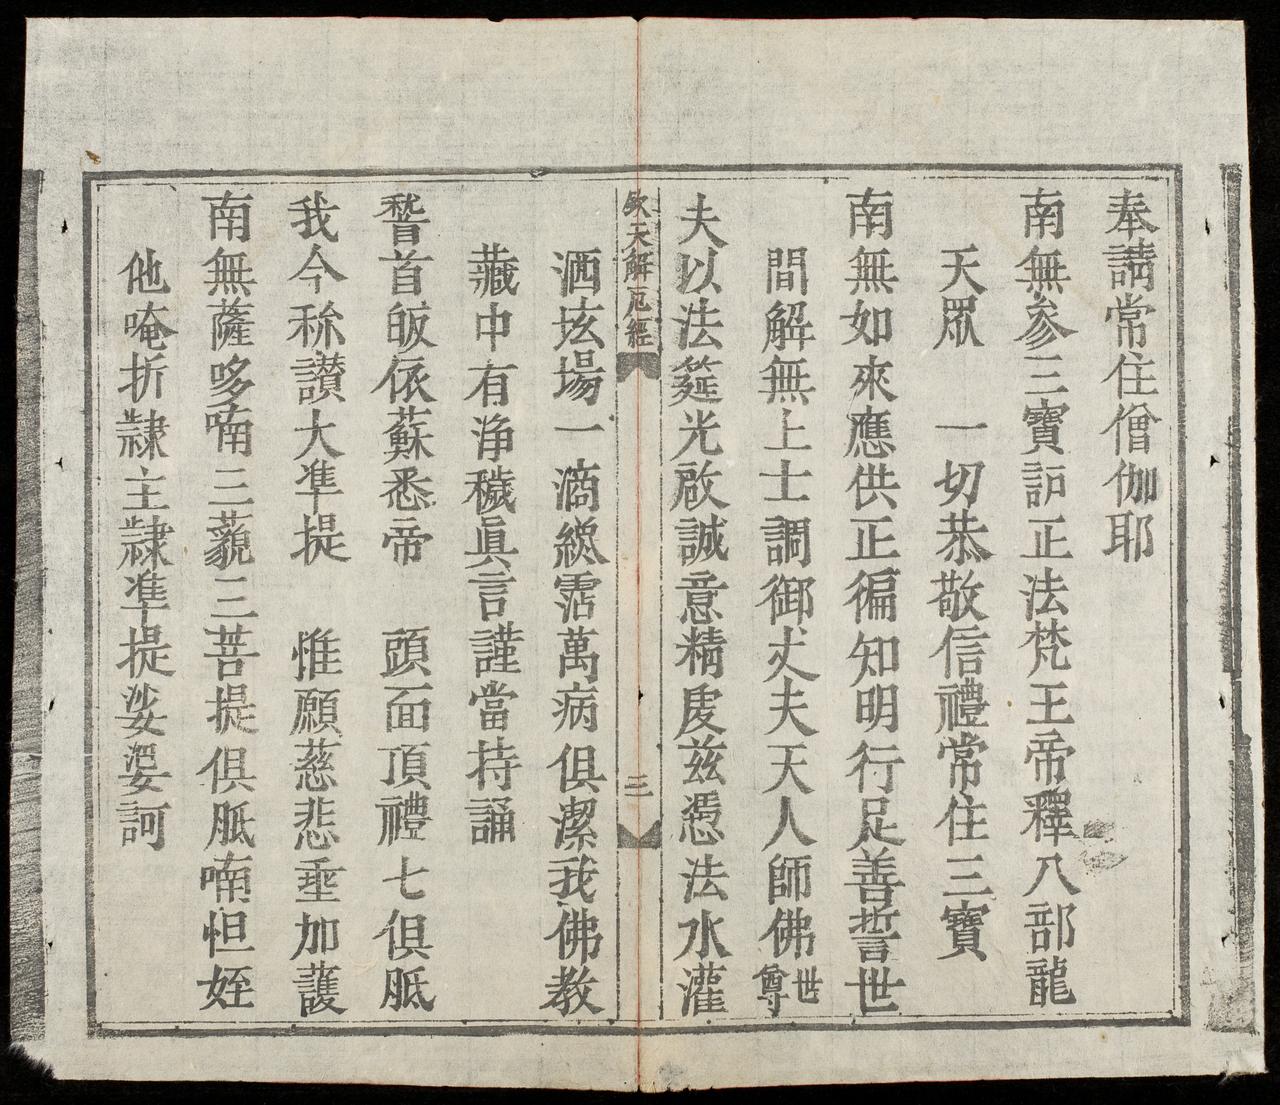 奉請常住僧伽耶
南無叅三寶訢正法梵王帝釋八部龍
天眾　一切恭敬信禮常住三寶
南無如來應供正徧知明行足善誓世
間解無上士調御丈夫天人師佛世尊
夫以法筵光啟誠意精虔兹憑法水灌
欽天解厄經
三
洒垓場一滴緫霑萬病俱潔我佛教
藏中有浄穢眞言謹當持誦
稽首皈依蘇悉帝　頭面頂禮七俱胝
我今称讃大凖提　惟願慈悲垂加護
南無薩哆喃三藐三菩提俱胝喃怛姪
他唵折隸主隸凖提娑婆訶